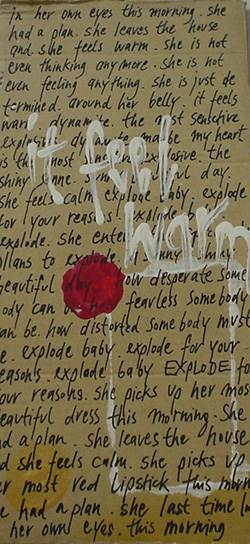 in her own eyes this morning. she
had a plan. she leaves the house
and she feels warm. she is not
even thinking anymore. she is not
even feeling anything. she is just de
termined. around her belly. it feels
warm. dynamite. the most sensitive
maybe my heart
is the most explosive. the
shiny day.
she feels calm. explode baby. explode
for your reasons. explode
explode. she
plans to explode. a sunny
beautiful day. how desperate some
body can be. how fearless somebody
can be. how distorted somebody must
be. explode baby. explode for your
reasons. explode baby EXPLODE fo
your reasons. she picks up her mos
beautiful dress this morning. She
had a plan. she leaves the house
and she feels calm. she picks up
her most red lipstick. this morn
she had a plan. she last time
her own eyes. this morning
it feel
warm